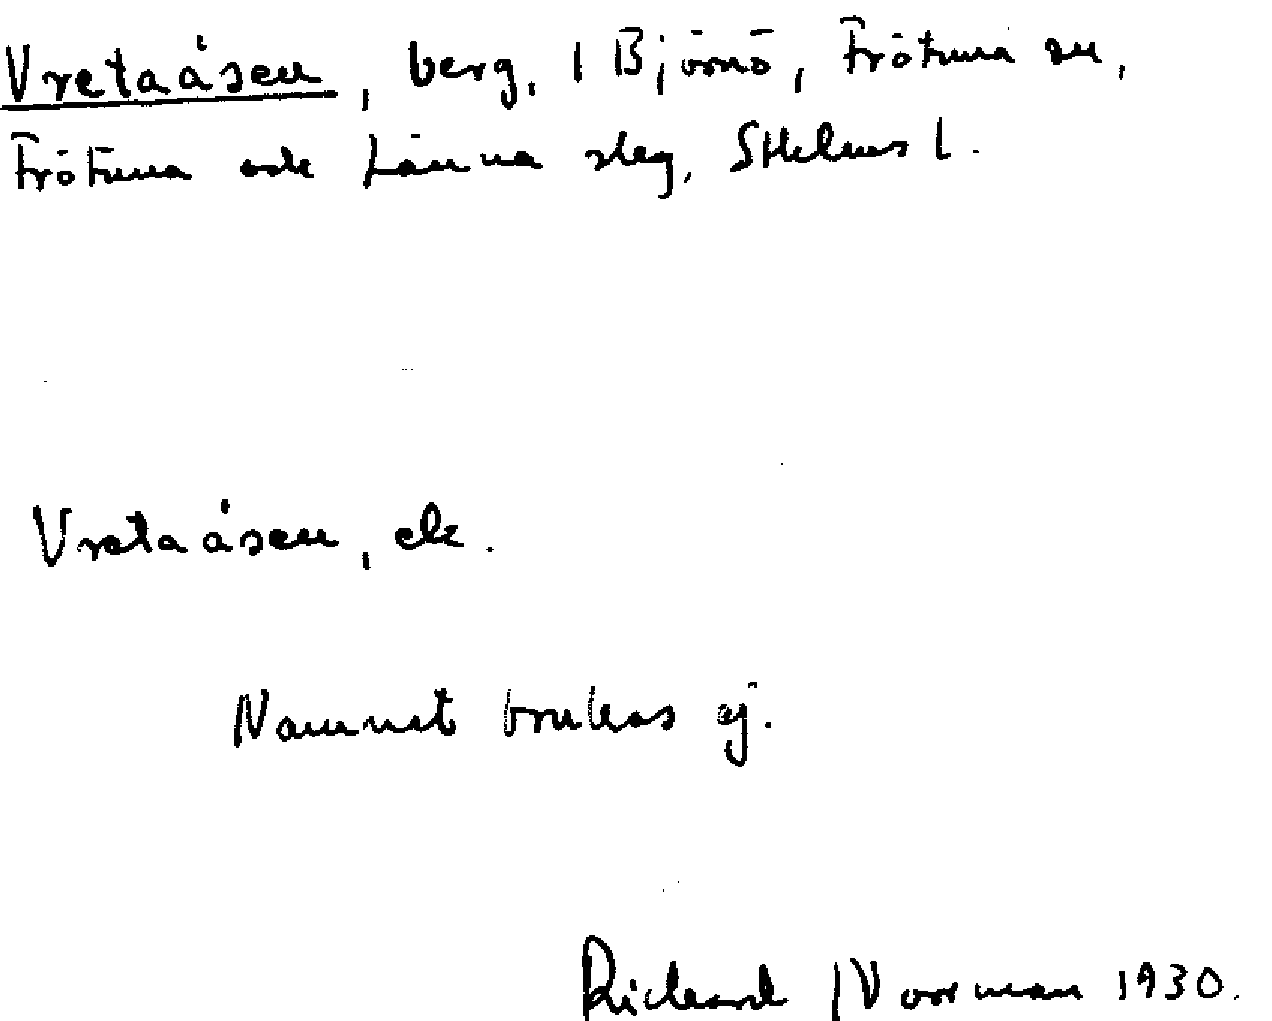 Vretaåsen, berg, i Björnö, Frötuna sn,
Frötuna och Länna slag, Sthlms l.
Vretaåsen, ek.
Namnet brukas ej.
Richard Norrman 1930.